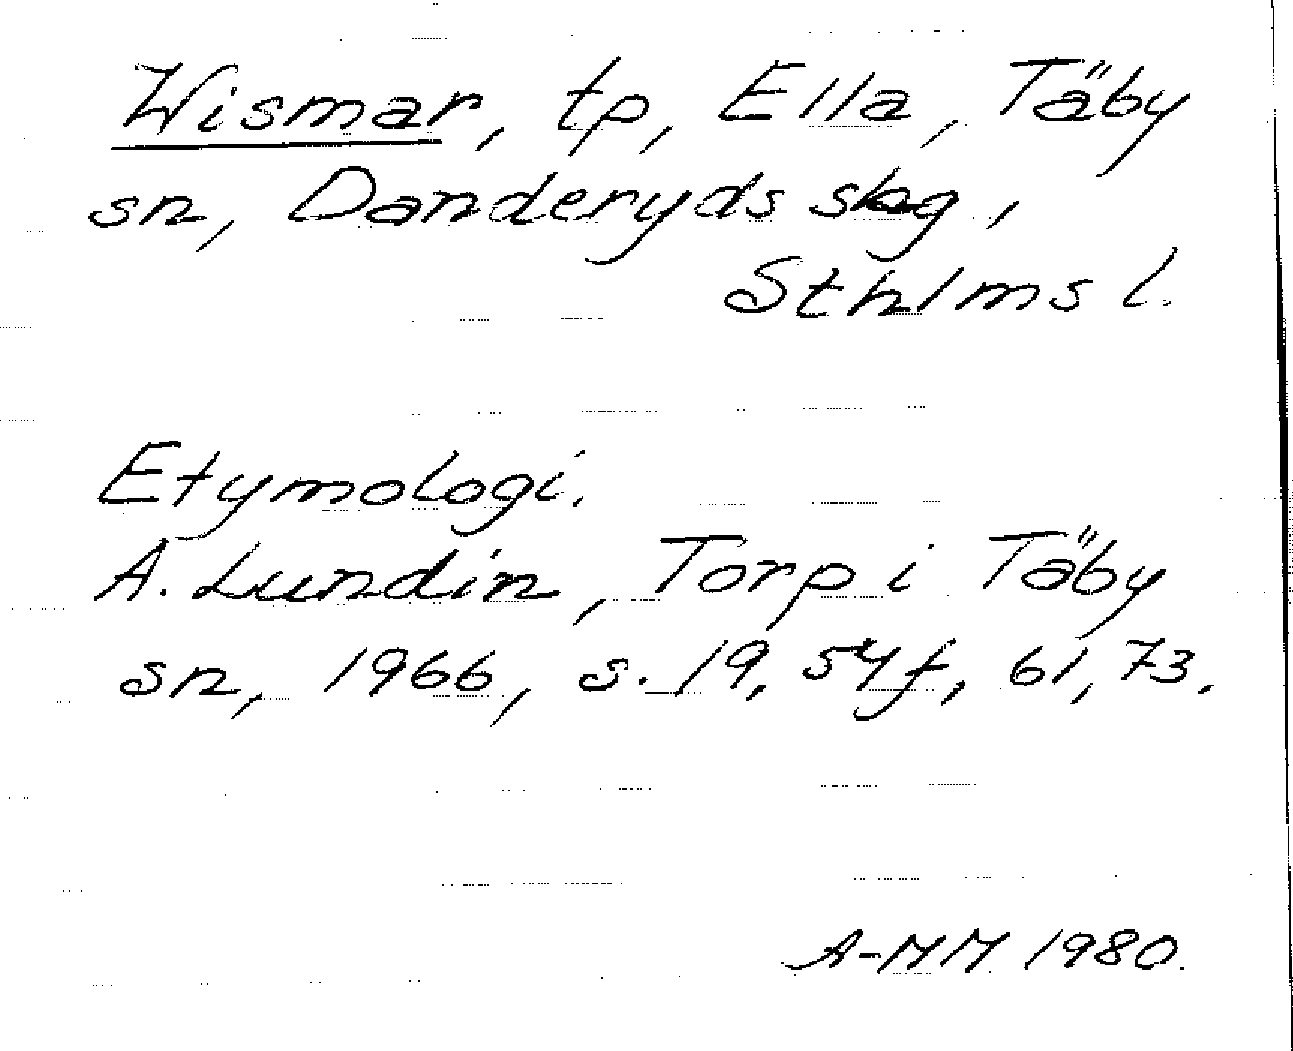 Wismar, tp, Ella, Täby
sn, Danderyds skg,
Sthlms l.
Etymologi.
A. Lundin, Torp i Täby
sn, 1966, s. 19, 54f, 61, 73.
A-MM 1980.